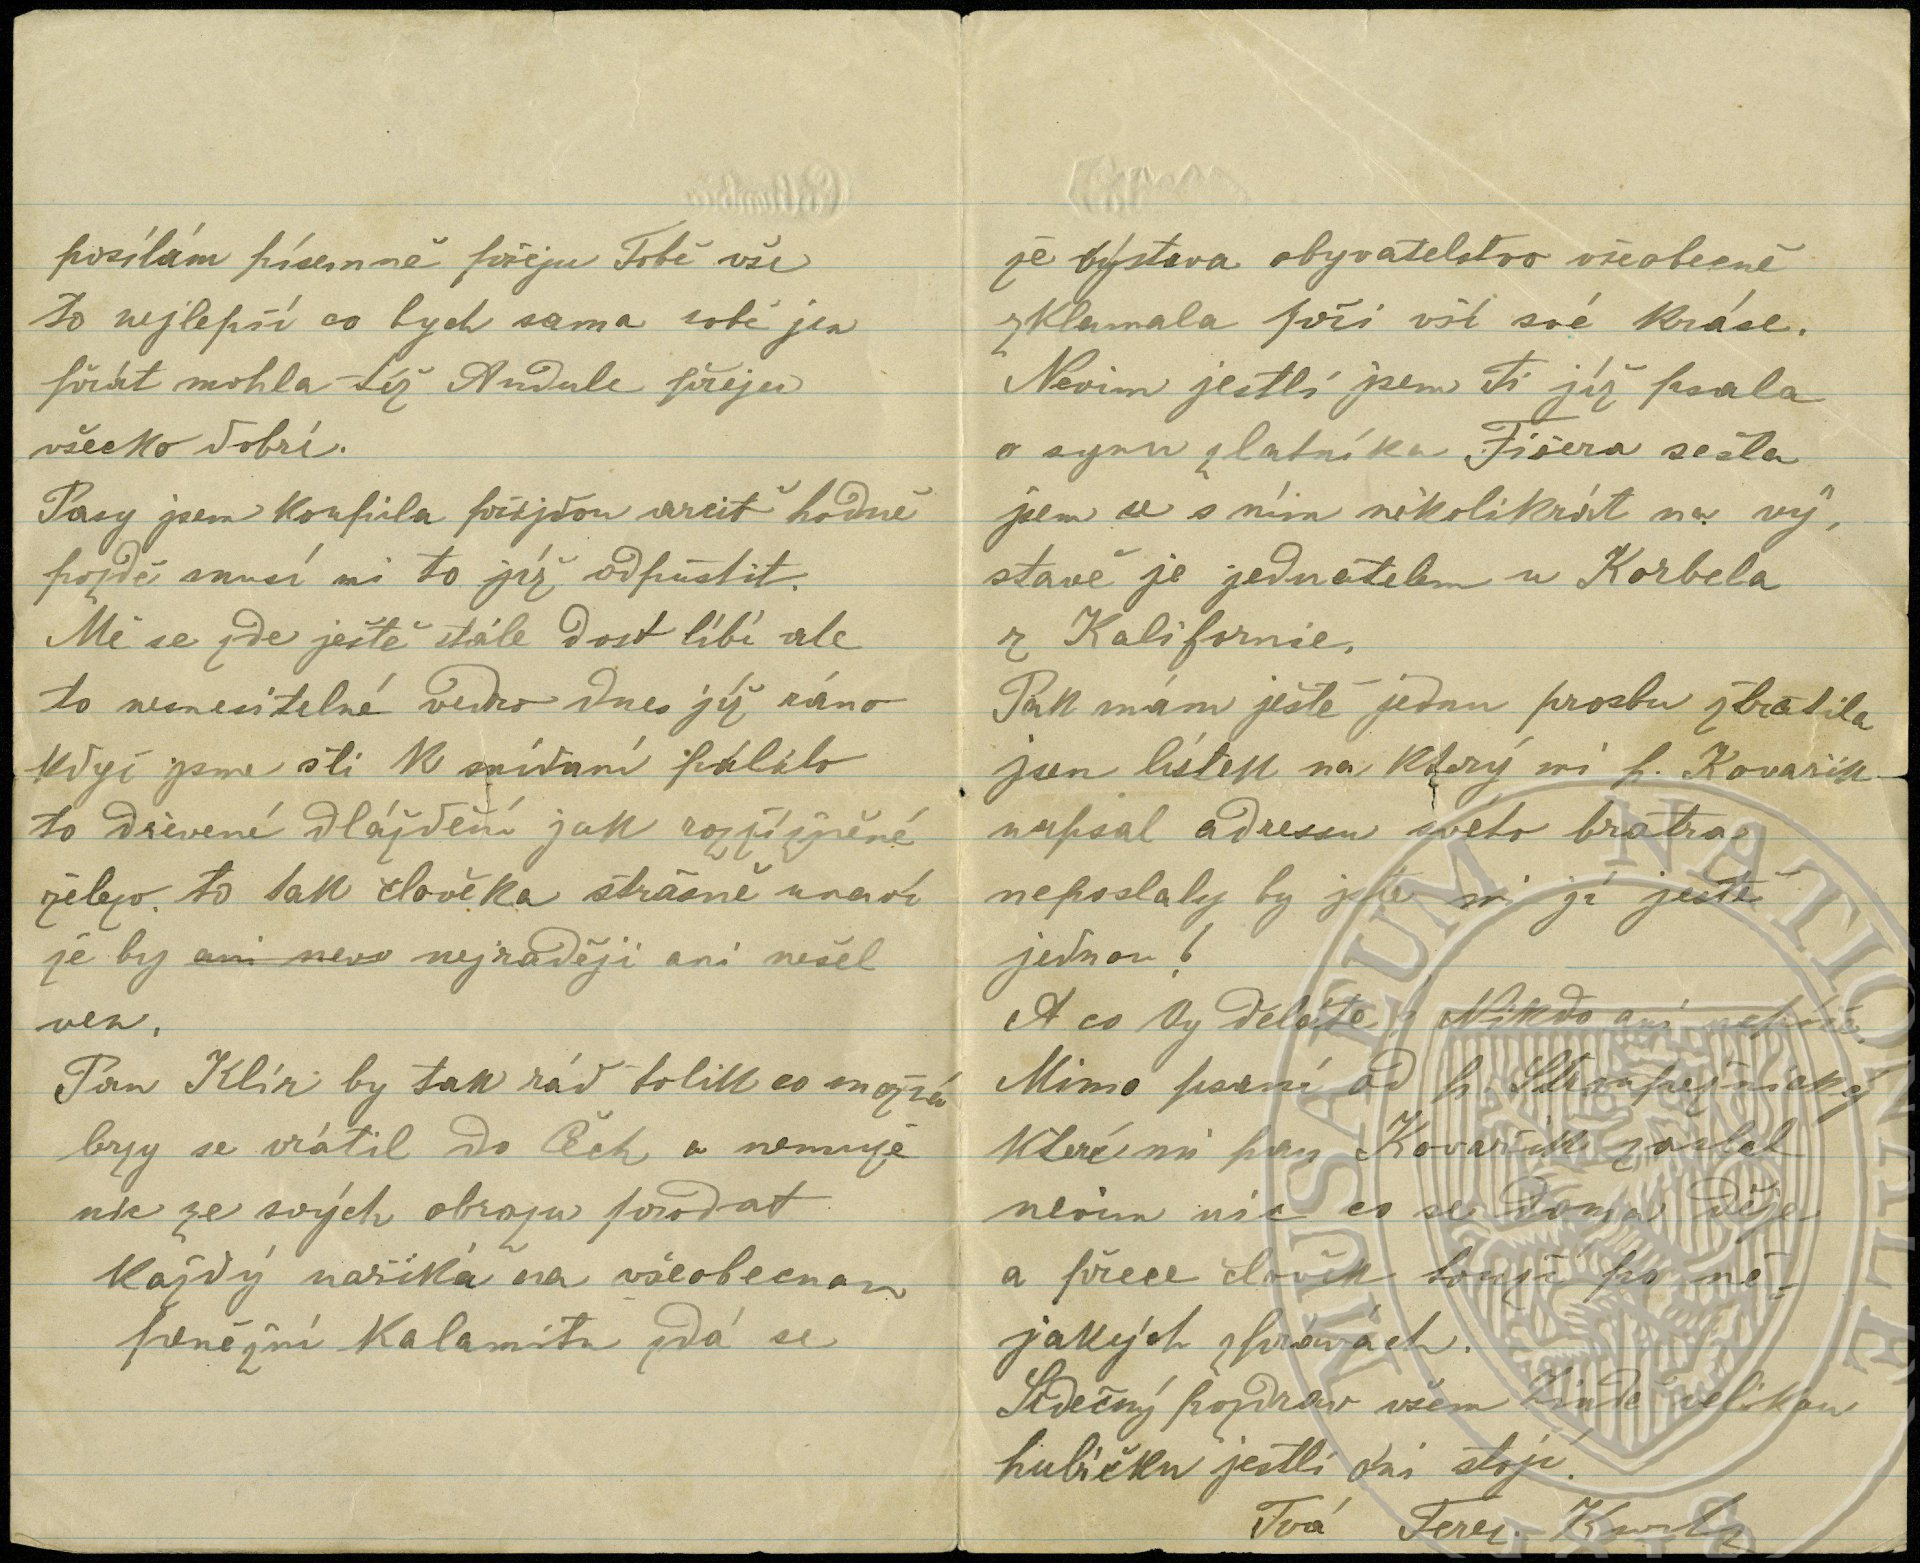 posílám písemně přeju Tobě vše
to nejlepší co bych sama sobě jen
přát mohla též Andule přeju
všecko dobrí.
Pasy jsem koupila přijdou arcit hodně
pozdě musí mi to již odpustit.
Mě se zde ještě stále dost líbí ale
to nesnesitelné vedro dnes již ráno
když jsme šli k snídaní pálilo
to dřevené dláždění jak rozžížněné
železo. to tak člověka strašně unaví
že by ani nevo nejraději ani nešel
ven.
Pan Klír by tak rád tolik co možná
brzy se vrátil do Čech a nemuže
nic ze svých obrazu prodat
každý nařiká na všeobecnou
peněžní kalamitu zdá se
že výstava obyvatelstvo všeobecně
zklamala při vší své kráse.
Nevim jestlí jsem Ti již psala
o synu zlatníka Fišera sešla
jsem se s ním několikrát na vý,
stavě je jednatelem u Korbela
z Kalifornie.
Pak mám ještě jednu prosbu ztratila
jsem lístek na který mi p. Kovařik
napsal adressu svého bratra
neposlaly by jste mi jí ještě
jednou?
A co Vy děláte? Nikdo ani nepíše.
Mimo psaní od p. Stroupežnický
které mi pan Kovařik zaslal
nevim nic co se doma děje
a přece človék touží po ně-
jakých zprávách.
Srdečný pozdrav všem Lindě velikou
hubičku jestlí oni stojí.
Tvá Terez.